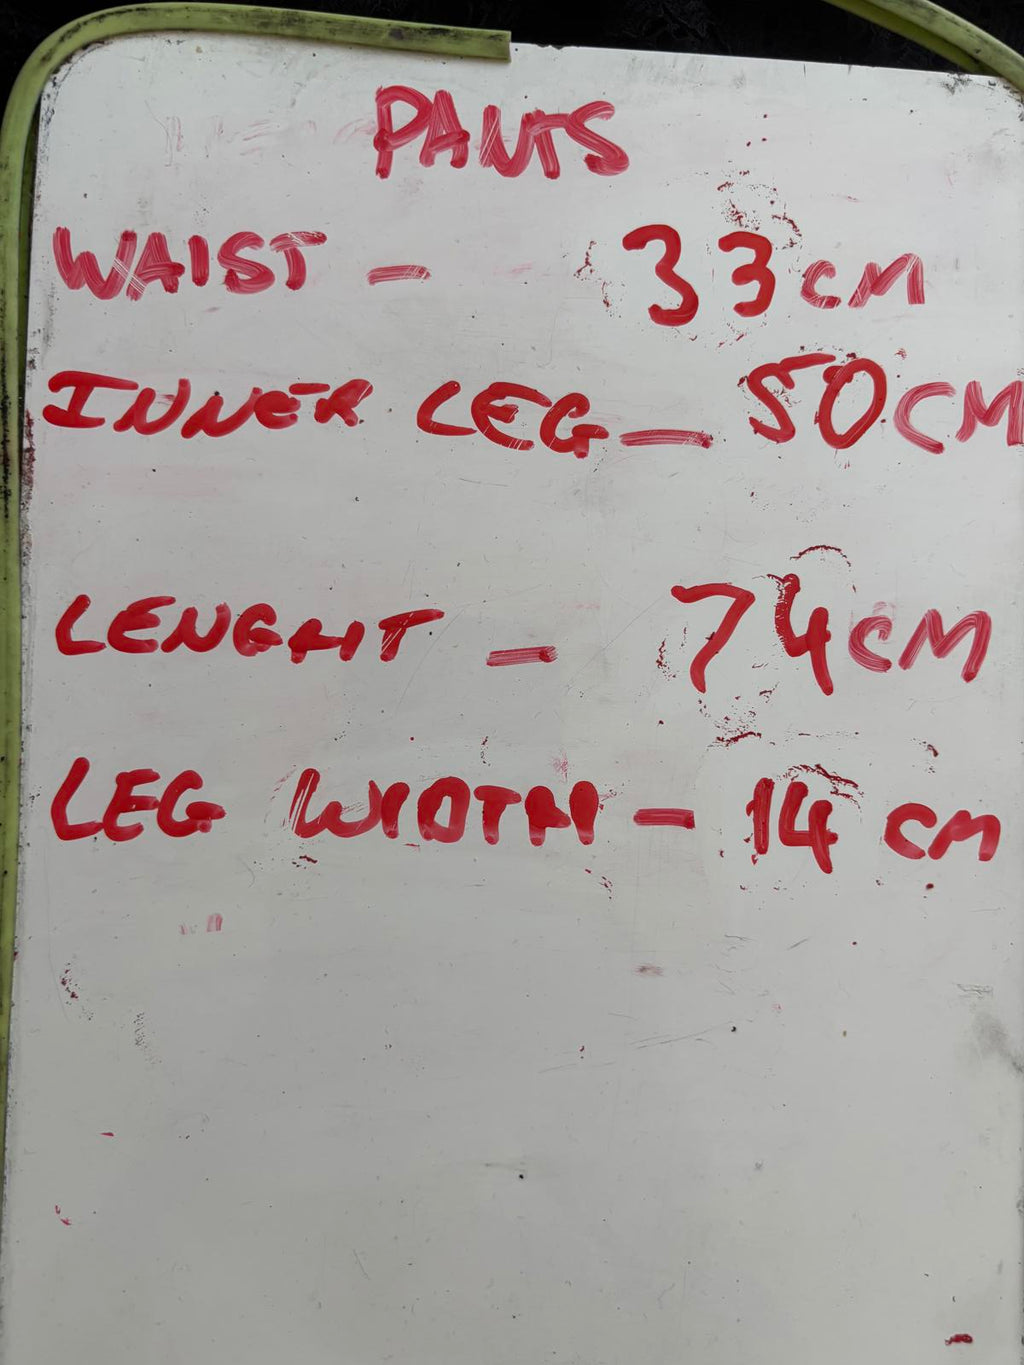 PANTS
WAIST - 33CM
INNER LEG - 50CM
LENGHT - 74CM
LEG WIDTH - 14 CM